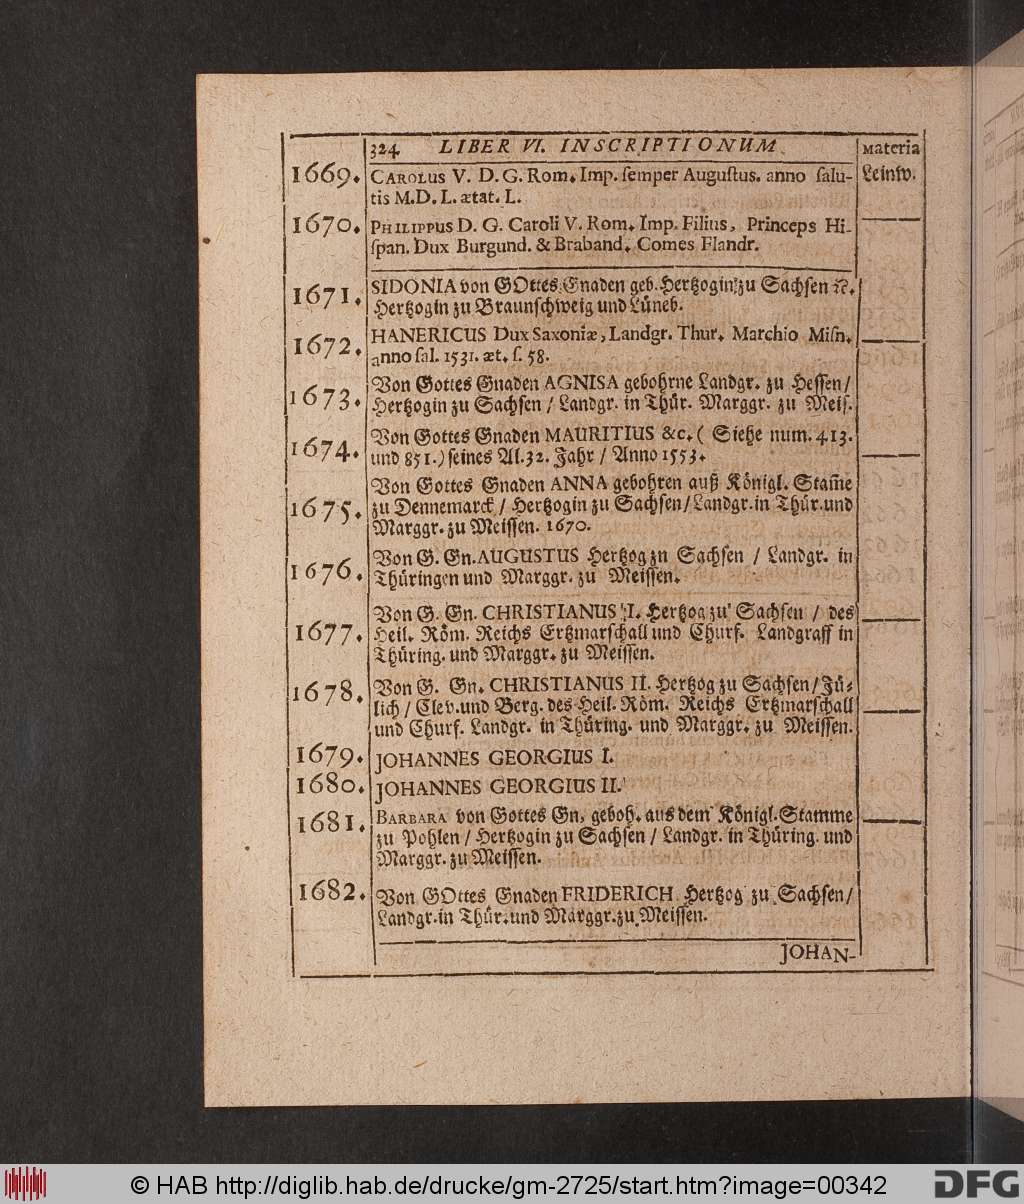 324 LIBER VI. INSCRIPTIONUM. Materia
1669. CAROLUS V. D. G. Rom. Imp. ſemper Auguſtus. anno ſalu- Leinw.
tis M.D. L. ætat. L.
1670. PHILIPPUS D. G. Caroli V. Rom. Imp. Filius, Princeps Hi-
ſpan. Dux Burgund. & Braband. Comes Flandr.
1671. SIDONIA von GOttes Gnaden geb. Hertzogin zu Sachſen ꝛc.
Hertzogin zu Braunſchweig und Lüneb.
1672. HANERICUS Dux Saxoniæ, Landgr. Thur. Marchio Miſn.
anno ſal. 1531. æt. ſ. 58.
1673. Von Gottes Gnaden AGNISA gebohrne Landgr. zu Heſſen /
Hertzogin zu Sachſen / Landgr. in Thür. Marggr. zu Meiſ.
1674. Von Gottes Gnaden MAURITIUS &c. ( Siehe num. 413.
und 851.) ſeines Al. 32. Jahr / Anno 1553.
1675. Von Gottes Gnaden ANNA gebohren auß Königl. Stam̄e
zu Dennemarck / Hertzogin zu Sachſen / Landgr. in Thür. und
Marggr. zu Meiſſen. 1670.
1676. Von G. Gn. AUGUSTUS Hertzog zn Sachſen / Landgr. in
Thüringen und Marggr. zu Meiſſen.
1677. Von G. Gn. CHRISTIANUS I. Hertzog zu Sachſen / des
Heil. Röm. Reichs Ertzmarſchall und Churf. Landgraff in
Thüring. und Marggr. zu Meiſſen.
1678. Von G. Gn. CHRISTIANUS II. Hertzog zu Sachſen / Jü-
lich / Clev. und Berg. des Heil. Röm. Reichs Ertzmarſchall
und Churf. Landgr. in Thüring. und Marggr. zu Meiſſen.
1679. JOHANNES GEORGIUS I.
1680. JOHANNES GEORGIUS II.
1681. BARBARA von Gottes Gn. geboh. aus dem Königl. Stamme
zu Pohlen / Hertzogin zu Sachſen / Landgr. in Thüring. und
Marggr. zu Meiſſen.
1682. Von GOttes Gnaden FRIDERICH Hertzog zu Sachſen /
Landgr. in Thür. und Marggr. zu Meiſſen.
JOHAN-
© HAB http://diglib.hab.de/drucke/gm-2725/start.htm?image=00342
DFG